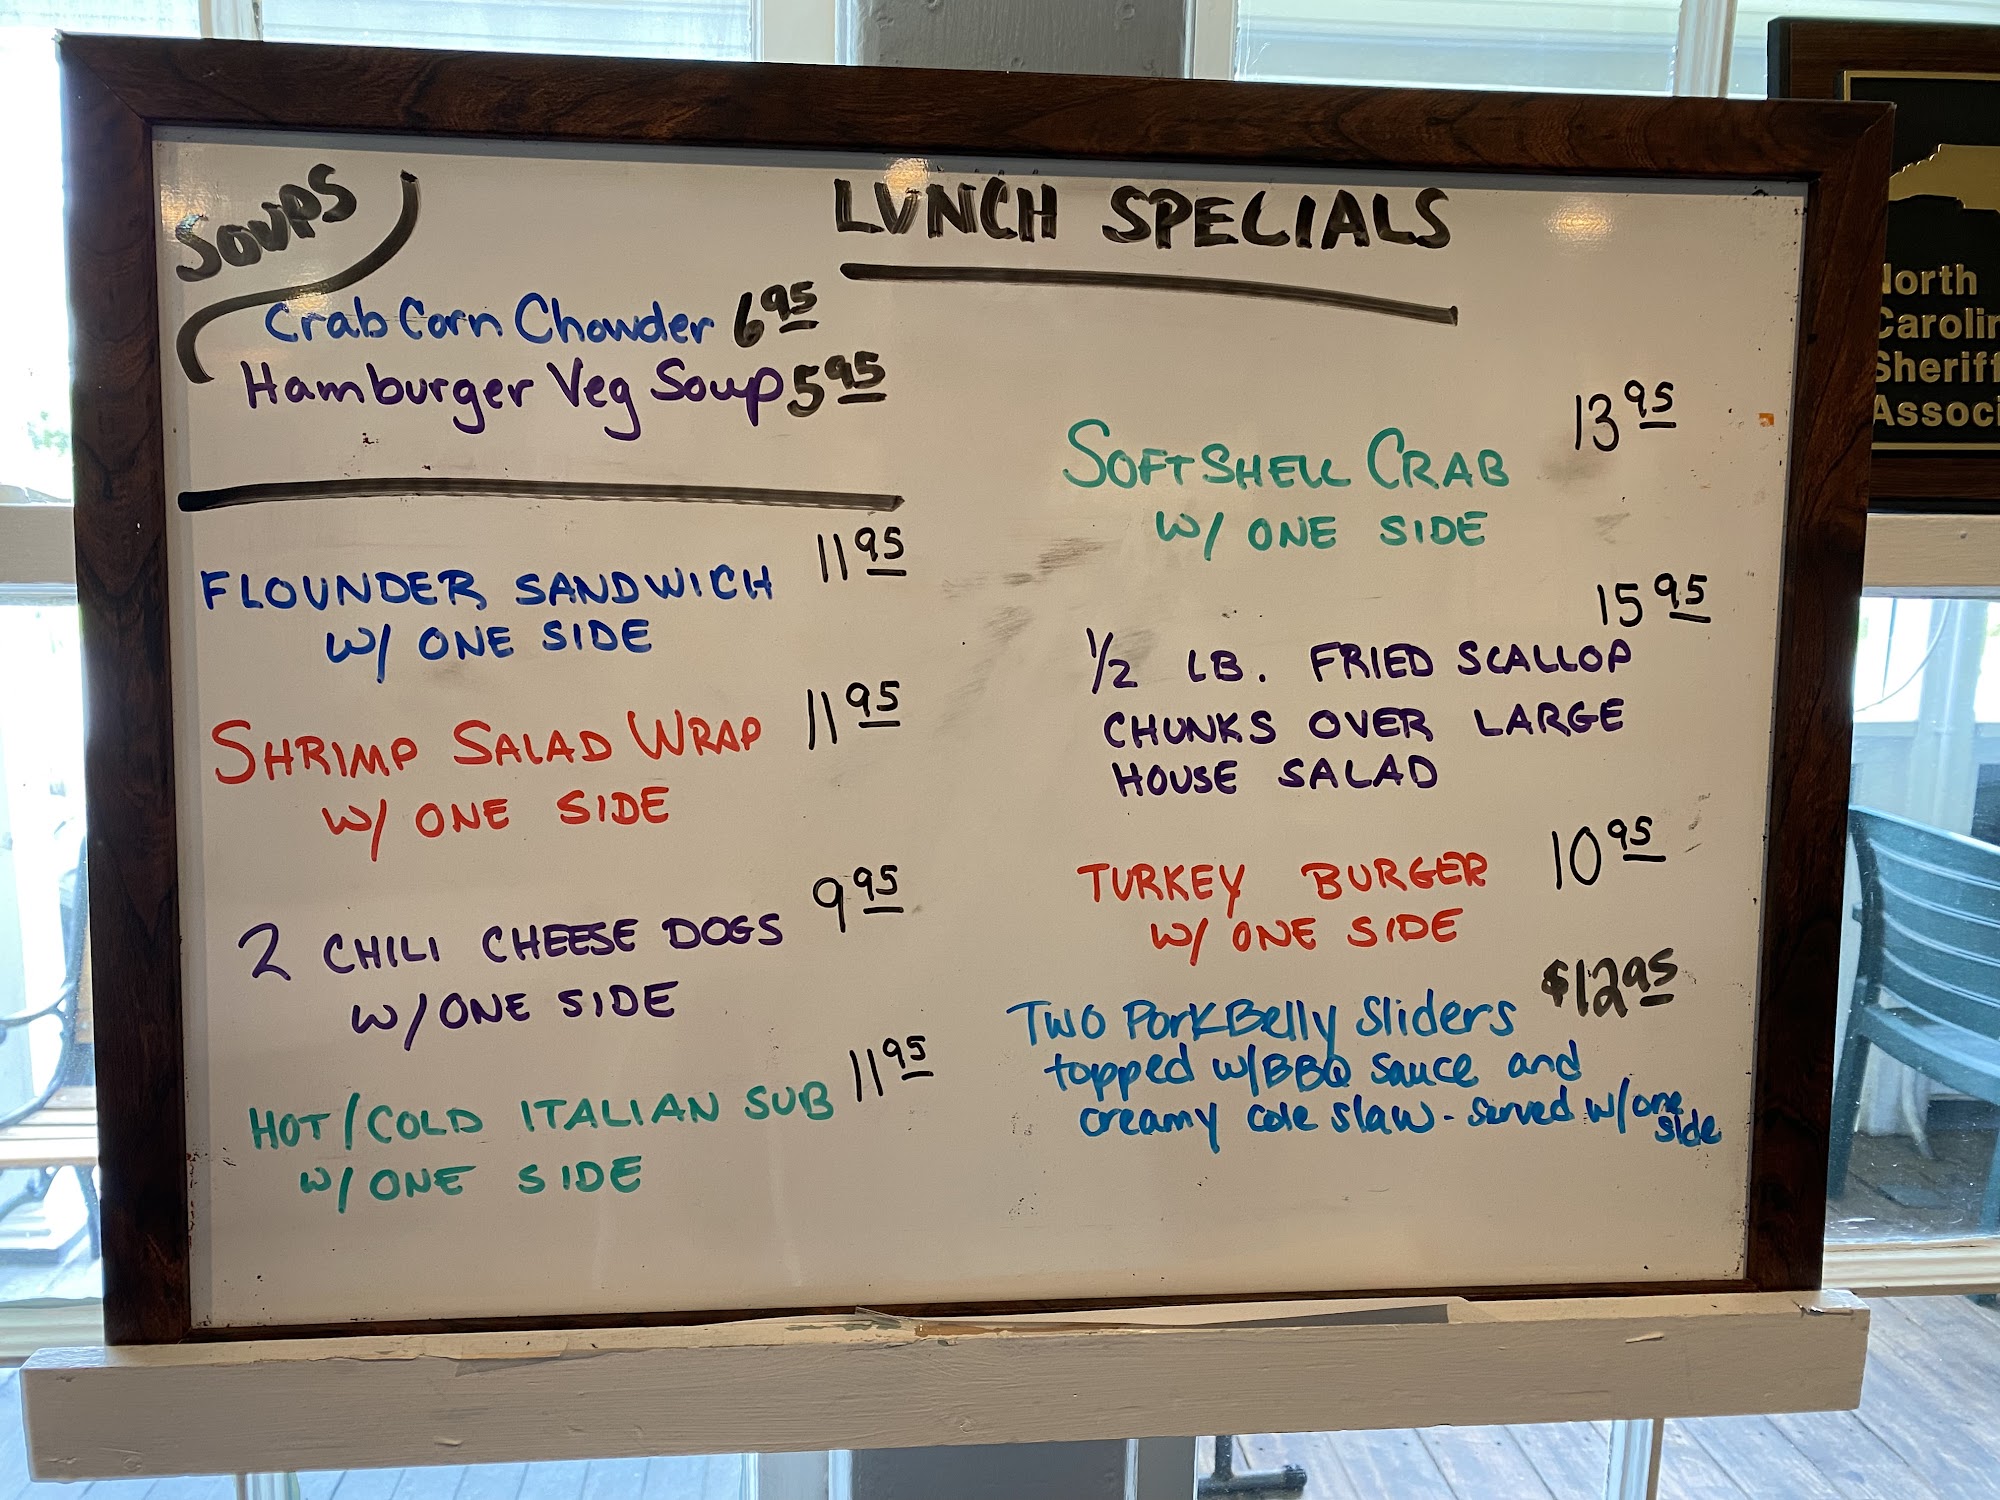 SOUPS
LUNCH SPECIALS
Crab Corn Chowder 6 95
Hamburger Veg Soup 5 95
FLOUNDER SANDWICH 11 95
W/ ONE SIDE
SHRIMP SALAD WRAP 11 95
W/ ONE SIDE
2 CHILI CHEESE DOGS 9 95
W/ ONE SIDE
HOT/COLD ITALIAN SUB 11 95
W/ ONE SIDE
SOFTSHELL CRAB 13 95
W/ ONE SIDE
15 95
1/2 LB. FRIED SCALLOP
CHUNKS OVER LARGE
HOUSE SALAD
TURKEY BURGER 10 95
W/ ONE SIDE
TWO PorkBelly Sliders $12 95
topped w/BBQ sauce and
creamy cole slaw - served w/one
side
North
Sheriff